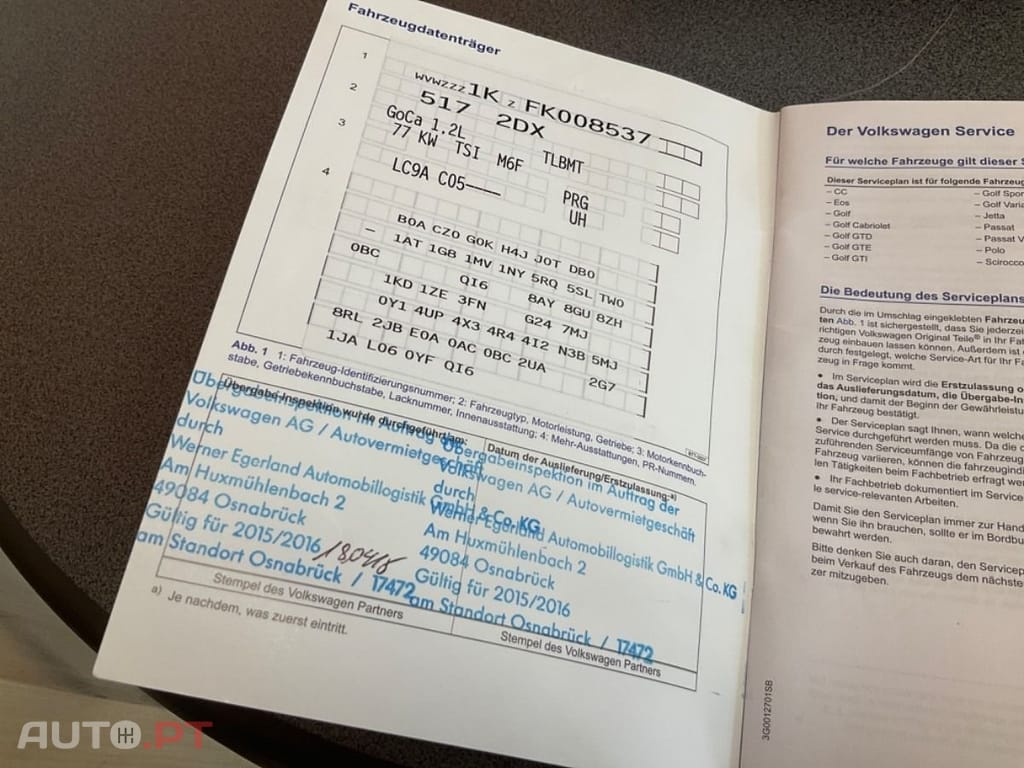 Fahrzeugdatenträger
1
WVWZZZ1K Z FK008537
2
517 2DX
GoCa 1.2L TLBMT
3
77 KW TSI M6F
4
LC9A C05 PRG
UH
B0A CZ0 G0K H4J J0T DB0
– 1AT 1GB 1MV 1NY 5RQ 5SL TW0
0BC QI6 8AY 8GU 8ZH
1KD 1ZE 3FN G24 7MJ
0Y1 4UP 4X3 4R4 4I2 N3B 5MJ
8RL 2JB E0A 0AC 0BC 2UA 2G7
1JA L06 0YF QI6
Abb. 1 1: Fahrzeug-Identifizierungsnummer; 2: Fahrzeugtyp, Motorleistung, Getriebe; 3: Motorkennbuch-
stabe, Getriebekennbuchstabe, Lacknummer, Innenausstattung; 4: Mehr-Ausstattungen, PR-Nummern.
Übergabe-Inspektion wurde durchgeführt am:
Datum der Auslieferung/Erstzulassung:a)
Übergabeinspektion im Auftrag der
Volkswagen AG / Autovermietgeschäft
durch
Werner Egerland Automobillogistik GmbH & Co. KG
Am Huxmühlenbach 2
49084 Osnabrück
Gültig für 2015/2016
am Standort Osnabrück / 17472
Übergabeinspektion im Auftrag der
Volkswagen AG / Autovermietgeschäft
durch
Werner Egerland Automobillogistik GmbH & Co. KG
Am Huxmühlenbach 2
49084 Osnabrück
Gültig für 2015/2016
am Standort Osnabrück / 17472
Stempel des Volkswagen Partners
Stempel des Volkswagen Partners
a) Je nachdem, was zuerst eintritt.
Der Volkswagen Service
Für welche Fahrzeuge gilt dieser
Dieser Serviceplan ist für folgende
– CC
– Eos
– Golf
– Golf Cabriolet
– Golf GTD
– Golf GTE
– Golf GTI
– Golf
– Golf
– Jetta
– Passat
– Passat
– Polo
– Scirocco
Die Bedeutung des Serviceplans
Durch die im Umschlag eingeklebten
ten Abb. 1 ist sichergestellt, dass Sie
richtigen Volkswagen Original Teile® in Ihr
zeug einbauen lassen können. Außerdem ist
durch festgelegt, welche Service-Art für Ihr
zeug in Frage kommt.
• Im Serviceplan wird die Erstzulassung
das Auslieferungsdatum, die
tion, und damit der Beginn der
Ihr Fahrzeug bestätigt.
• Der Serviceplan sagt Ihnen, wann
Service durchgeführt werden muss. Da die
zuführenden Serviceumfänge von
Fahrzeug variieren, können die
len Tätigkeiten beim Fachbetrieb erfragt
• Ihr Fachbetrieb dokumentiert im
le service-relevanten Arbeiten.
Damit Sie den Serviceplan immer zur
wenn Sie ihn brauchen, sollte er im
bewahrt werden.
Bitte denken Sie auch daran, den
beim Verkauf des Fahrzeugs dem
zer mitzugeben.
3G0012701SB
AUTO.PT